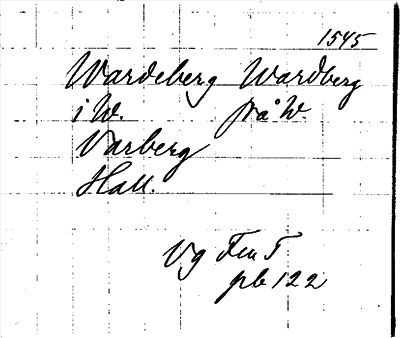 1545
Wardeberg Wardberg
i W. på W.
Varberg
Hall.
Vg Fen 5
pb 122